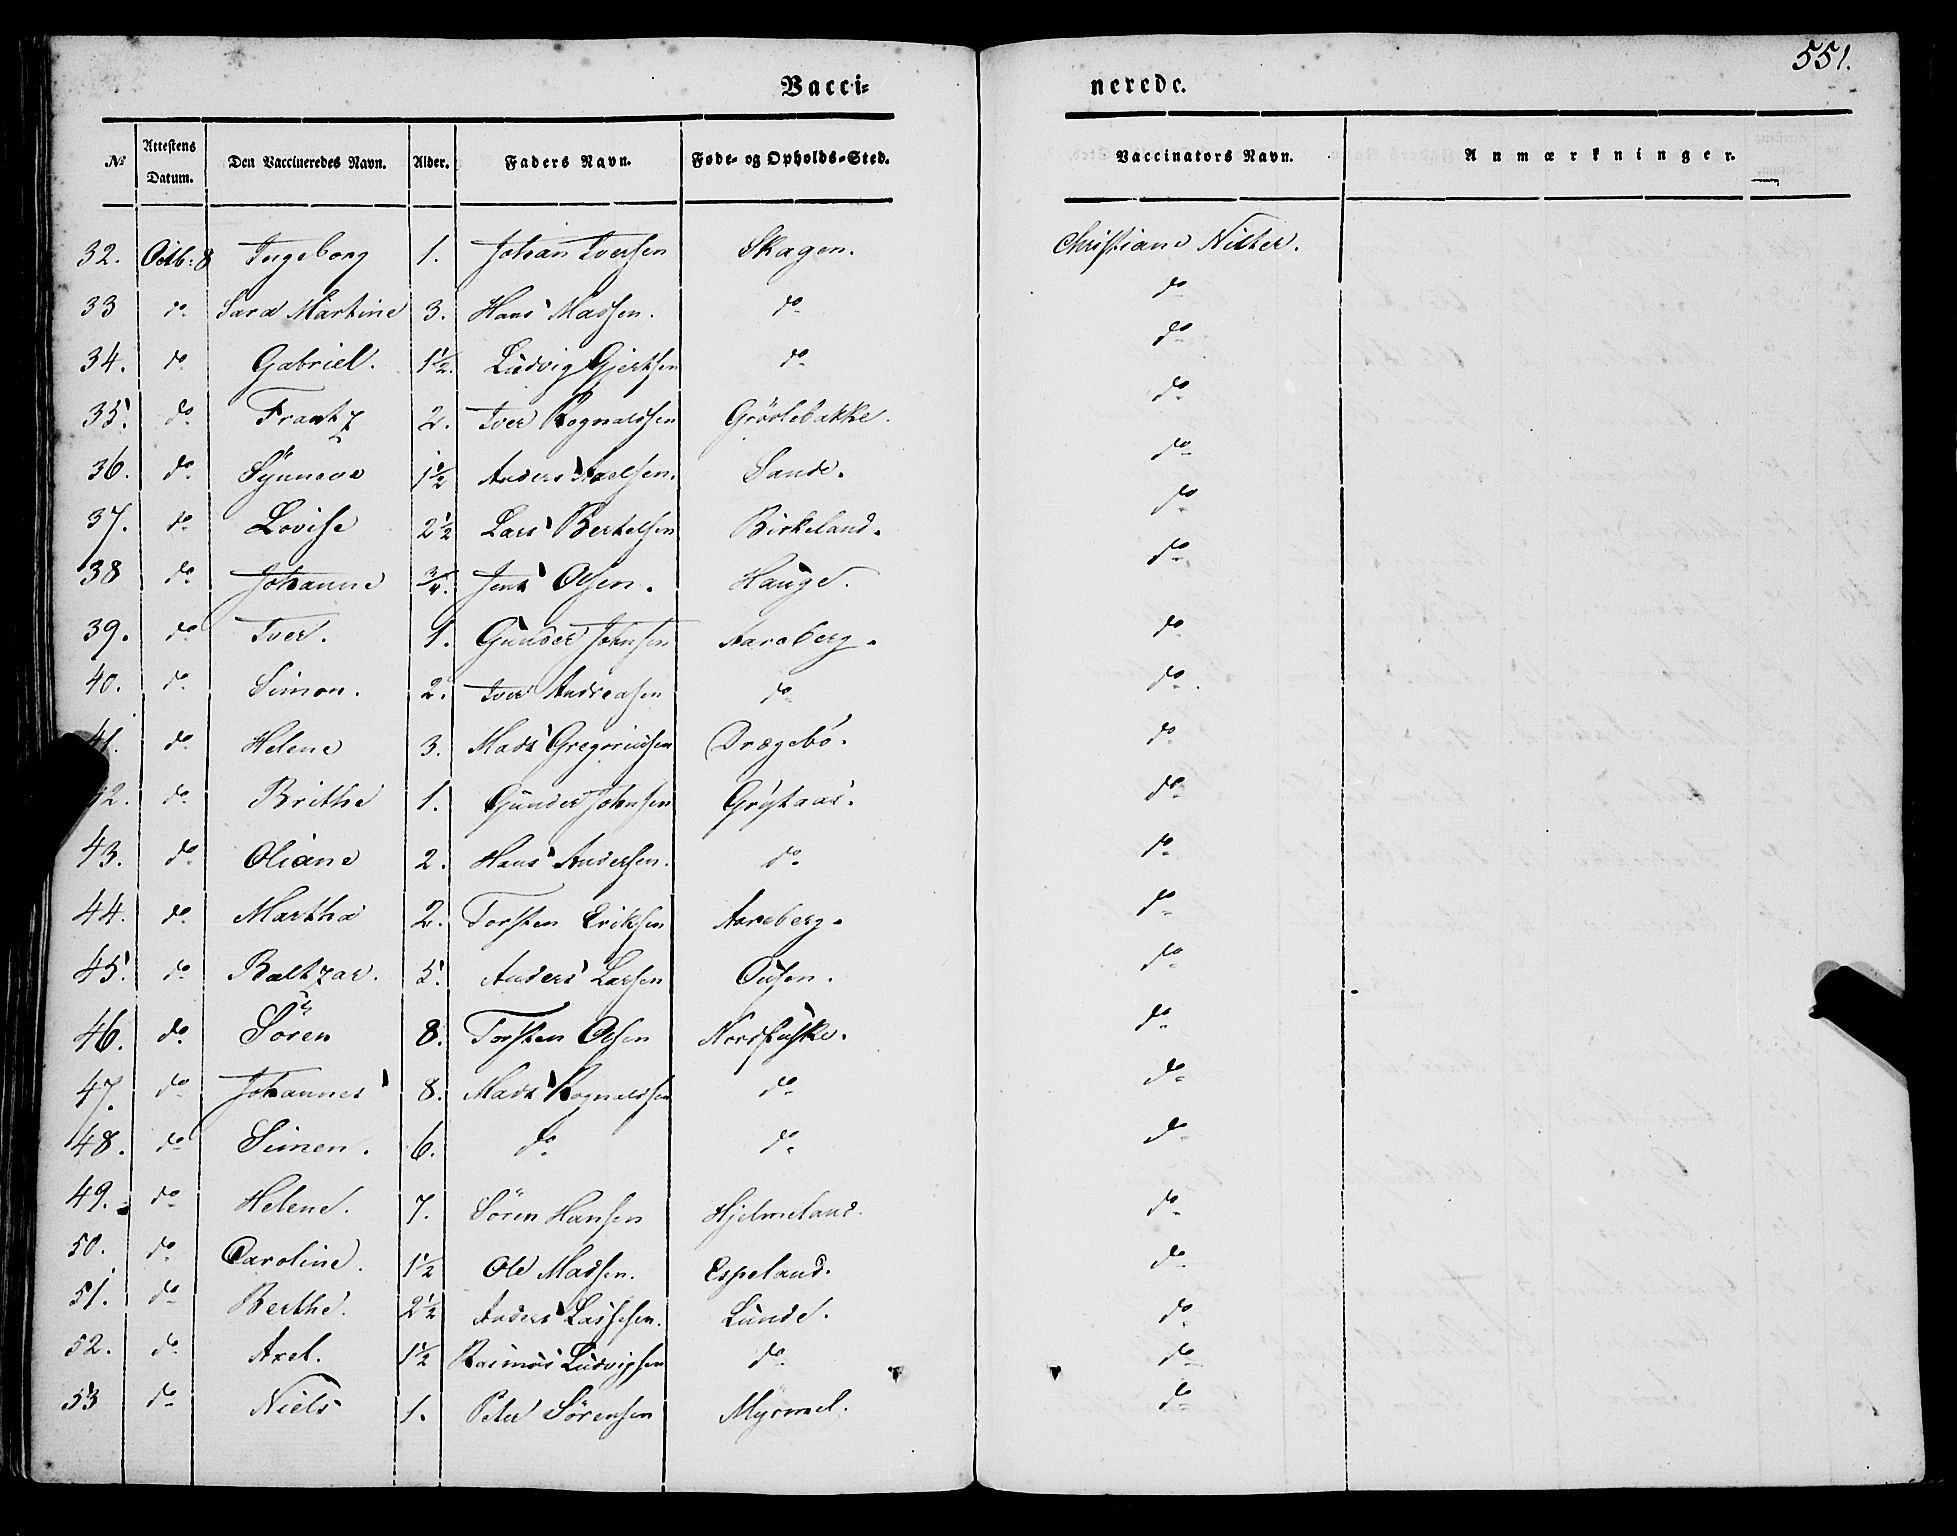 551.
Vacci- nerede.
№ | Attestens Datum. | Den Vaccineredes Navn. | Alder. | Faders Navn. | Føde- og Opholds-Sted. | Vaccinators Navn. | Anmærkninger.
32. Octb: 8 Ingeborg 1. Johan Iversen Skagen. Christiane Nitter.
33 do Sara Martine 3. Hans Madsen. do do
34. do Gabriel. 1½. Ludvig Gjertsen do do
35. do Frantz 2. Iver Rognaldsen Grøslebakke. do
36. do Synneve 1½ Anders Axelsen. Sande. do
37. do Lovise 2½ Lars Bertelsen Birkeland. do
38 do Johanne ¾. Jens Olsen. Hauge. do
39. do Iver. 1. Gunder Johnsen Aareberg. do
40. do Simon. 2. Iver Andreasen do do
41. do Helene 3. Mads Gregoriussen Drægebø. do
42. do Brithe 1. Gunder Johnsen Grytaas. do
43. do Oliane 2. Hans Andersen. do do
44. do Martha 2. Torsten Eriksen Aareberg. do
45. do Baltzar. 5. Anders Larsen Ousen. do
46. do Søren 8. Torsten Olsen Nordstuske. do
47. do Johannes 8. Mads Rognaldsen do do
48. do Simen. 6. do do do
49. do Helene. 7. Søren Hansen Hjelmeland. do
50. do Caroline. 1½ Ole Madsen. Espeland. do
51. do Berthe. 2½ Anders Lassesen. Lunde. do
52. do Axel. 1½ Rasmus Ludvigsen do do
53 do Niels 1. Peter Sørensen Myrmel. do